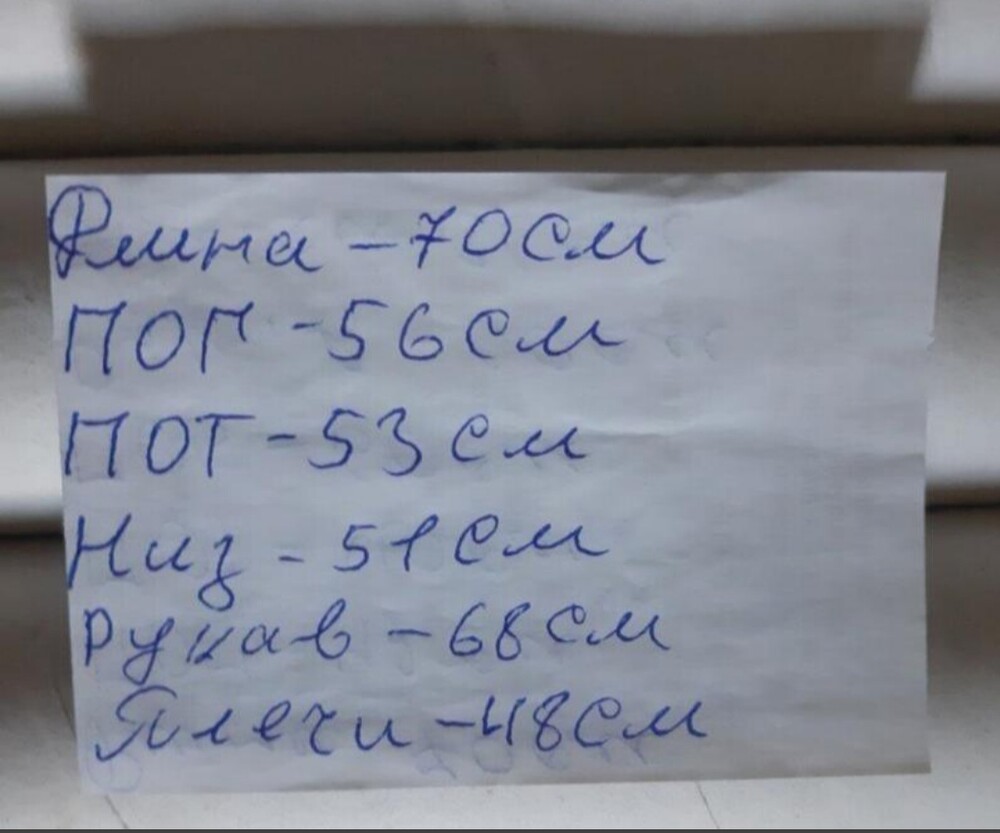 Длина - 70см
ПОГ - 56см
ПОТ - 53см
Низ - 51см
Рукав - 68см
Плечи - 48см